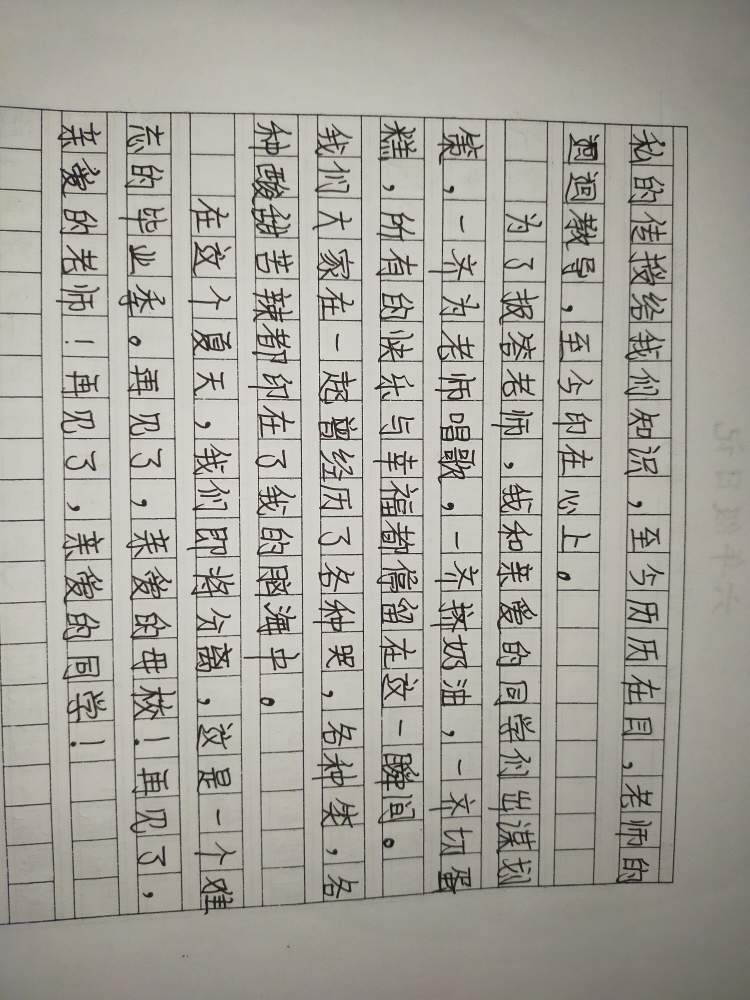 私的传授给我们知识，至今历历在目，老师的
迴迴教导，至今印在心上。
为了报答老师，我和亲爱的同学们出谋划
策，一齐为老师唱歌，一齐挤奶油，一齐切蛋
糕，所有的快乐与幸福都停留在这一瞬间。
我们大家在一起曾经历了各种哭，各种笑，各
种酸甜苦辣都印在了我的脑海中。
在这个夏天，我们即将分离，这是一个难
忘的毕业季。再见了，亲爱的母校！再见了，
亲爱的老师！再见了，亲爱的同学！